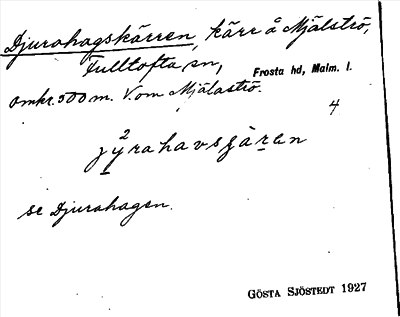 Djurahagskärren, kärr å Mjälströ,
Fulltofta sn, Frosta hd, Malm. l.
omkr. 500 m. V. om Mjälaströ.
4
2
jyrahavsjären
se Djurahagen.
GÖSTA SJÖSTEDT 1927